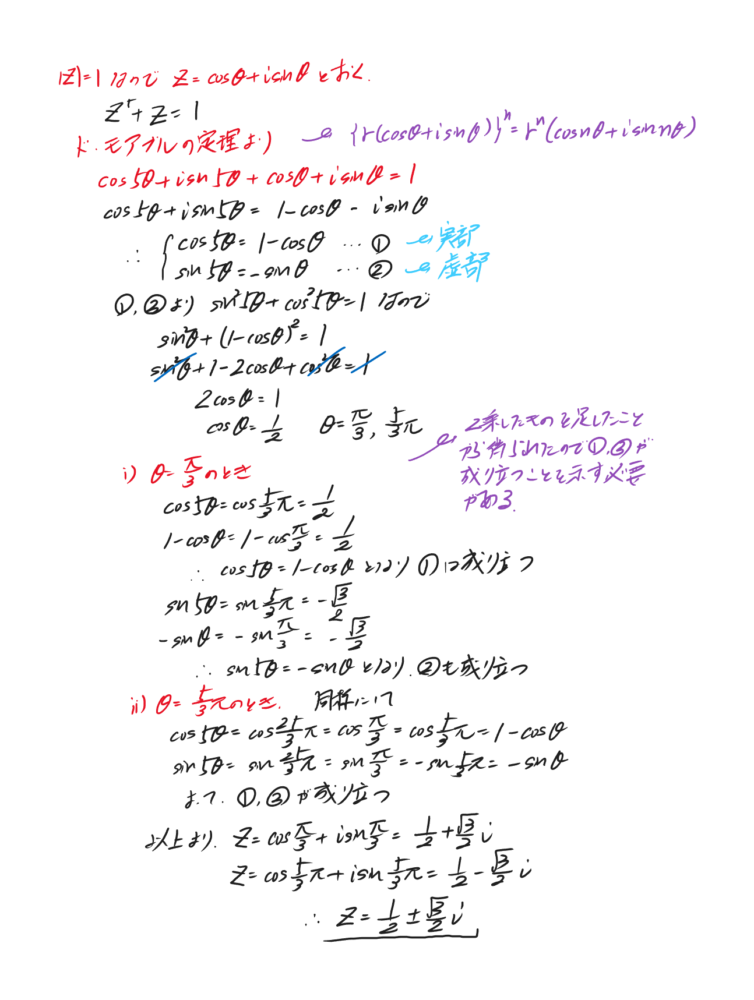 |z|=1 なので z=cosθ+isinθ とおく.
z⁵+z=1
ド・モアブルの定理より
{r(cosθ+isinθ)}ⁿ=rⁿ(cosnθ+isinnθ)
cos5θ+isin5θ+cosθ+isinθ=1
cos5θ+isin5θ=1-cosθ-isinθ
∴ { cos5θ=1-cosθ …① 実部
sin5θ=-sinθ …② 虚部
①,②より sin²5θ+cos²5θ=1 なので
sin²θ+(1-cosθ)²=1
sin²θ+1-2cosθ+cos²θ=1
2cosθ=1
cosθ=1/2 θ=π/3, 5/3π
2乗したものを足したこと
から得られたので①,②が
成り立つことを示す必要
がある.
i) θ=π/3のとき
cos5θ=cos5/3π=1/2
1-cosθ=1-cosπ/3=1/2
∴ cos5θ=1-cosθ となり ①は成り立つ
sin5θ=sin5/3π=-√3/2
-sinθ=-sinπ/3=-√3/2
∴ sin5θ=-sinθ となり.②も成り立つ
ii) θ=5/3πのとき. 同様にして
cos5θ=cos25/3π=cosπ/3=cos5/3π=1-cosθ
sin5θ=sin25/3π=sinπ/3=-sin5/3π=-sinθ
よって.①,②が成り立つ
以上より. z=cosπ/3+isinπ/3=1/2+√3/2i
z=cos5/3π+isin5/3π=1/2-√3/2i
∴ z=1/2±√3/2i